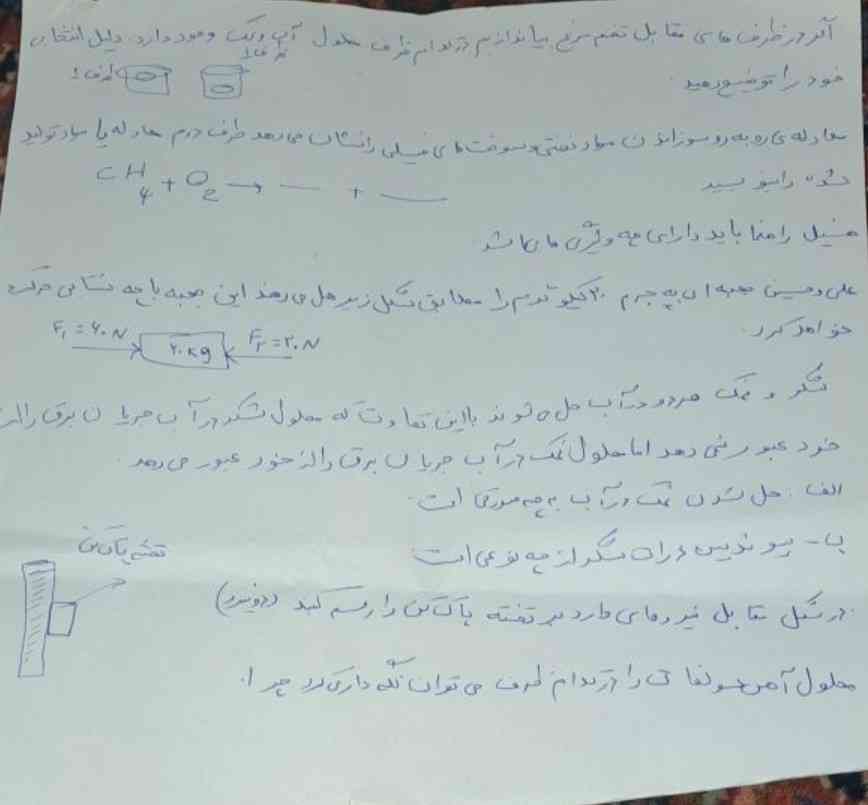 اگر در ظرف های مقابل تخم مرغ بیاندازیم در کدام ظرف محلول آب ونمک وجود دارد دلیل انتخاب
خود را توضیح دهید
ظرف ۱
معادله ی رو به رو سوزاندن مواد نفتی و سوخت های فسیلی را نشان می دهد طرف دوم معادله یا مواد تولید
شده را بنویسید
CH4 + O2 → — + —
فسیل راهنما باید دارای چه ویژگی هایی باشد
علی وحسین جعبه ای به جرم ۲۰ کیلوگرم را مطابق شکل زیر هل می دهند این جعبه با چه شتابی حرکت
خواهد کرد.
F₁ = ۶۰ N
۲۰ kg
F₂ = ۲۰ N
شکر و نمک هر دو در آب حل می شوند با این تفاوت که محلول شکر در آب جریان برق را از
خود عبور نمی دهد اما محلول نمک در آب جریان برق را از خود عبور می دهد.
الف: حل شدن نمک در آب به چه صورتی است.
ب- پیوند بین ذرات شکر از چه نوعی است
تخته پاک کن
در شکل مقابل نیروهای وارد بر تخته پاک کن را رسم کنید (دو نیرو)
محلول آهن سولفات را در کدام ظرف می توان نگه داری کرد چرا.